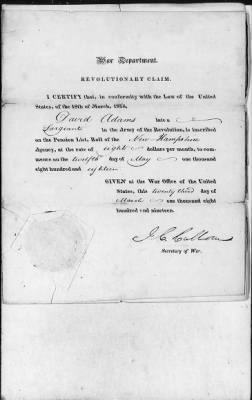 War Department.
REVOLUTIONARY CLAIM.
I CERTIFY that, in conformity with the Law of the United
States, of the 18th of March, 1818,
David Adams late a
Sargeant in the Army of the Revolution, is inscribed
on the Pension List, Roll of the New Hampshire
Agency, at the rate of eight dollars per month, to com-
mence on the twelfth day of May one thousand
eight hundred and eighteen
GIVEN at the War Office of the United
States, this twenty third day of
March one thousand eight
hundred and nineteen.
J. C. Calhoun
Secretary of War.